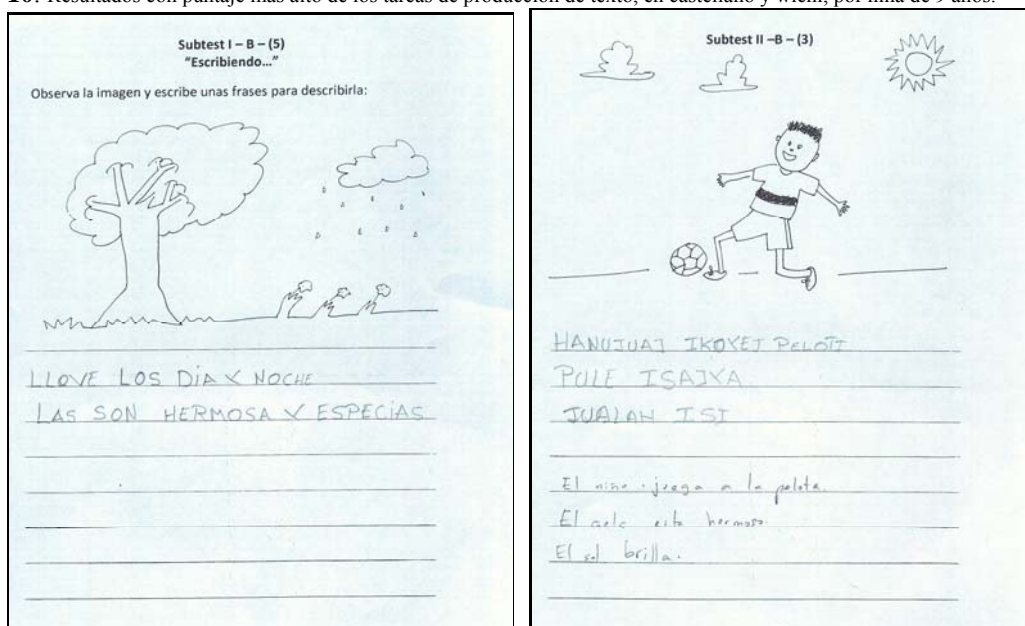 10. Resultados con puntaje más alto de los tareas de producción de texto, en castellano y wichi, por niña de 9 años.
Subtest I – B – (5)
"Escribiendo..."
Observa la imagen y escribe unas frases para describirla:
LLOVE LOS DÍA Y NOCHE
LAS SON HERMOSA Y ESPECIAS
Subtest II –B – (3)
HANUJUAJ IKOYEJ PELOTJ
PULE ISAJYA
JUALAH ISI
El niño juega a la pelota.
El cielo esta hermoso.
El sol brilla.